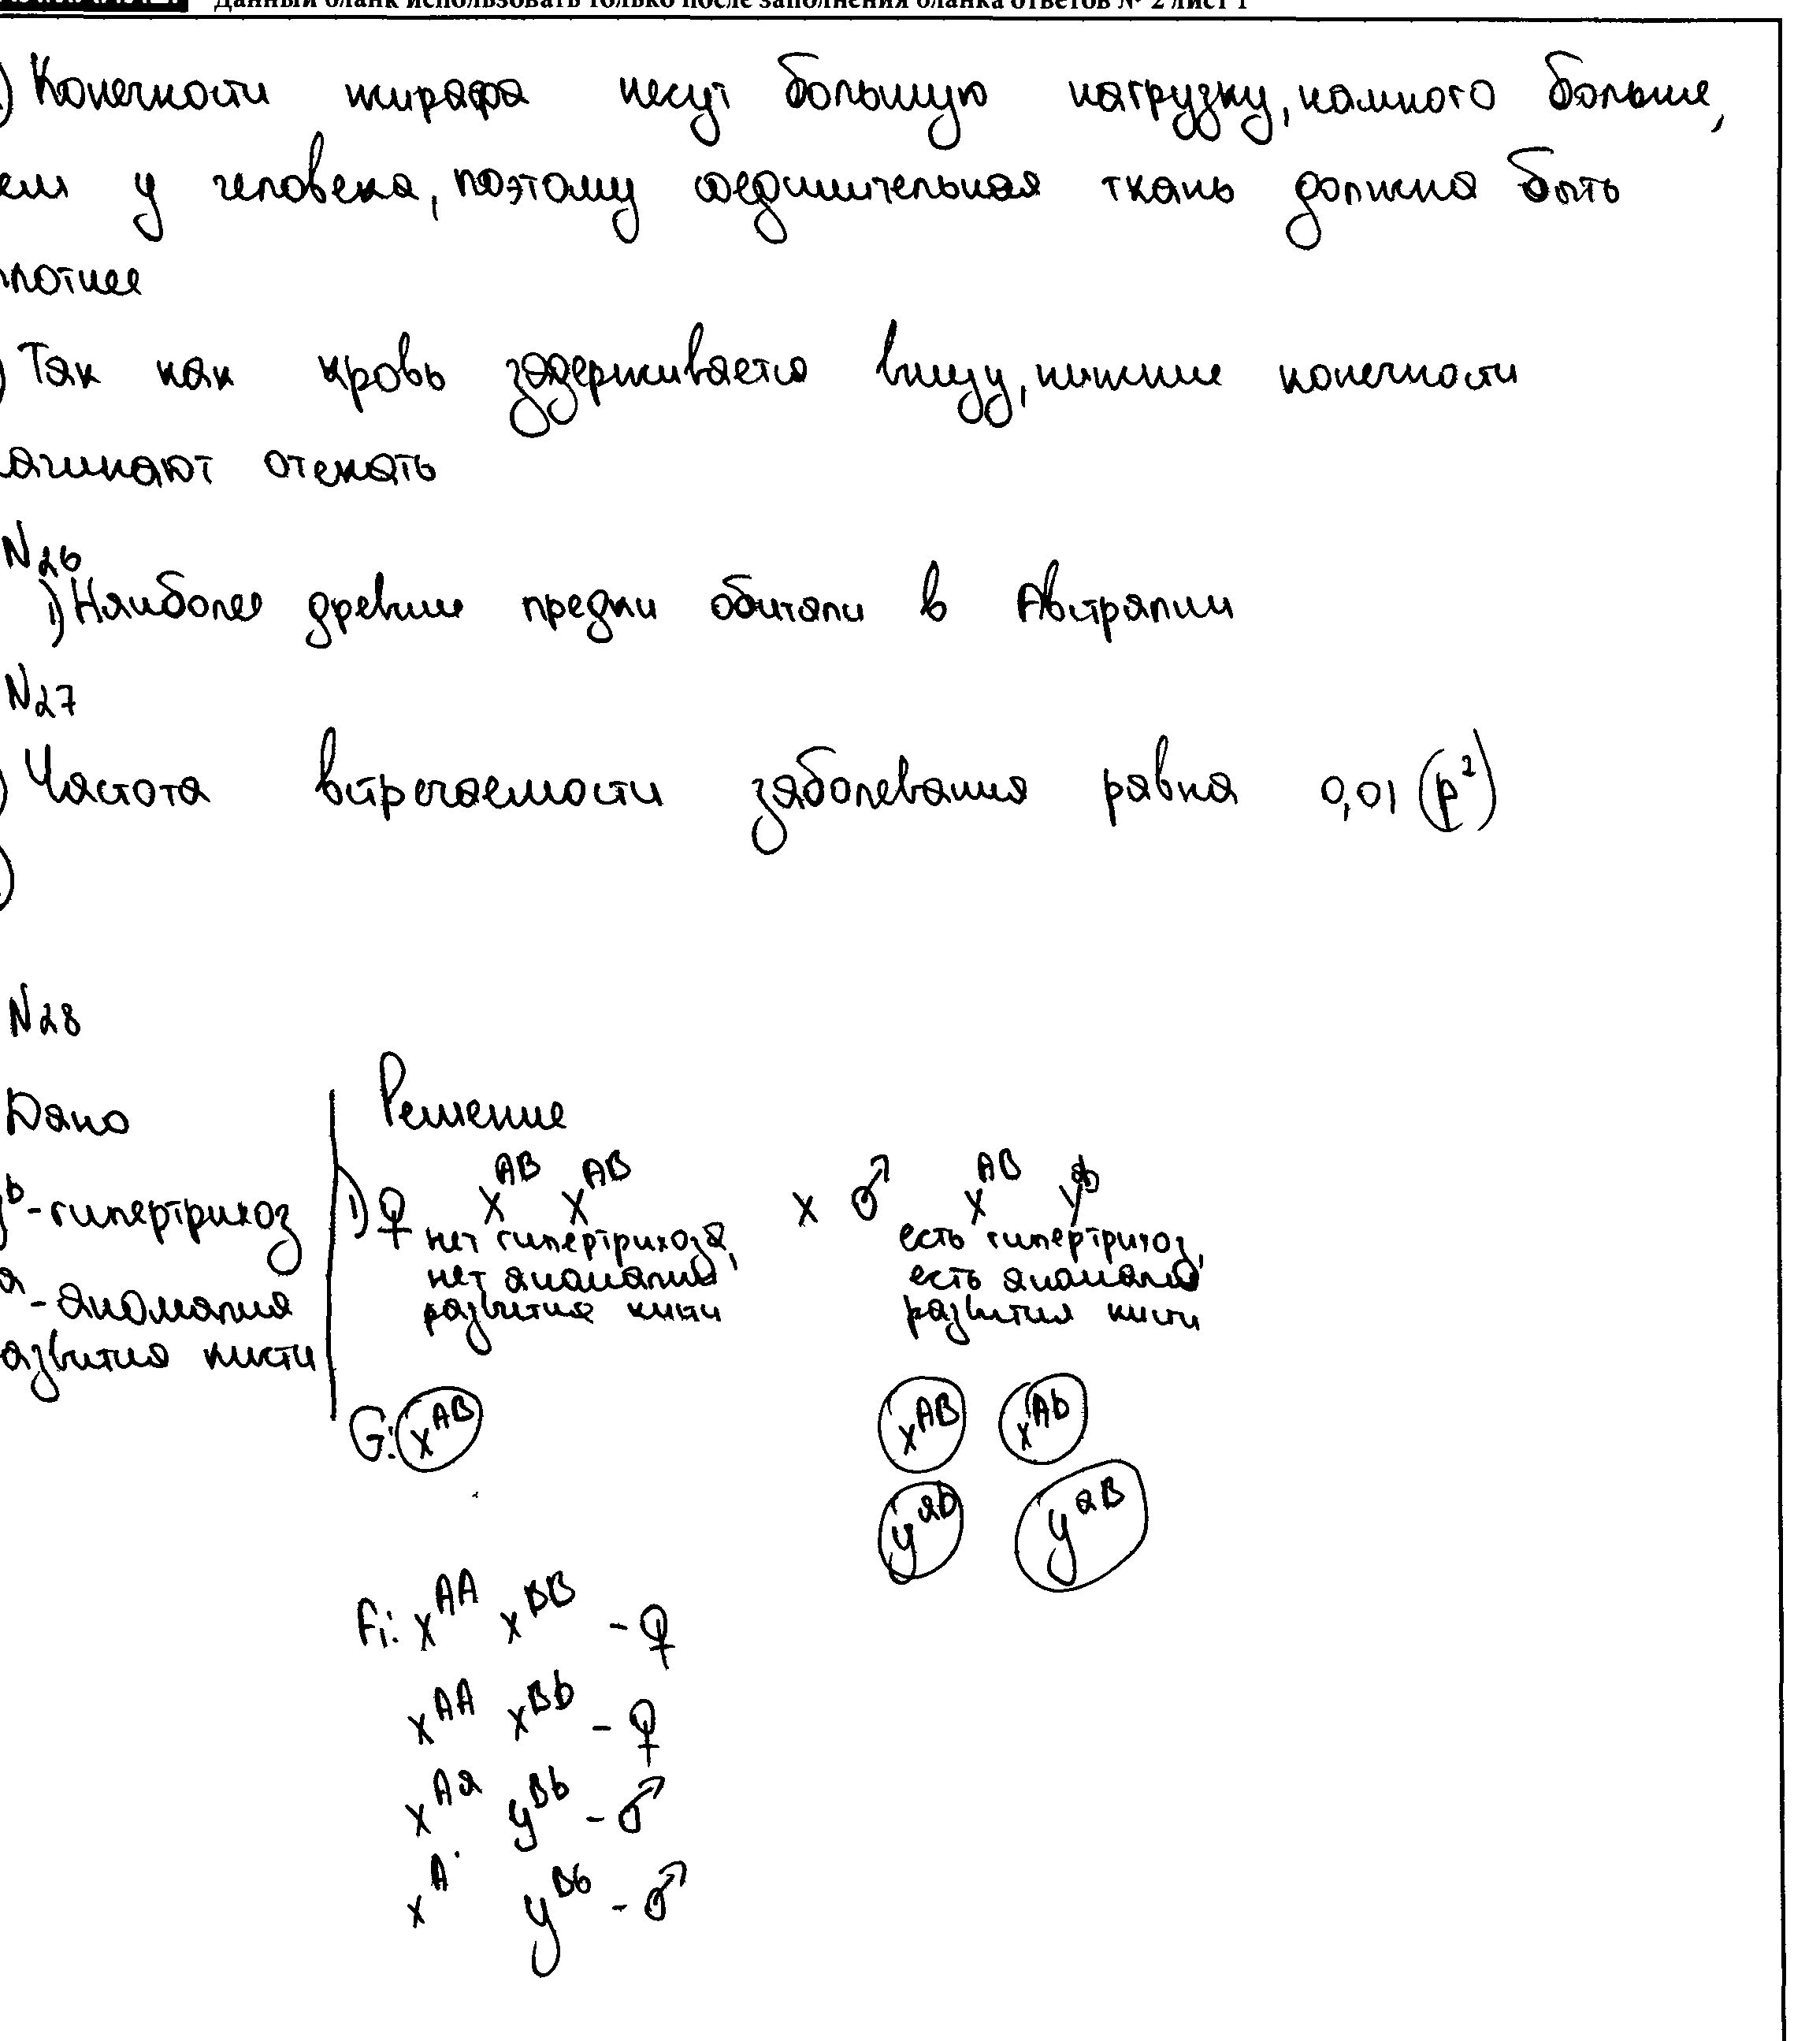 Данный бланк использовать только после заполнения бланка ответов № 2 лист 1
) Конечности жирафа несут большую нагрузку, намного больше,
ем у человека, поэтому соединительная ткань должна быть
плотнее
) Так как кровь задерживается внизу, нижние конечности
ачинают отекать
N26
1) Наиболее древние предки обитали в Австралии
N27
) Частота встречаемости заболевания равна 0,01 (p²)
)
N28
Дано
Решение
b - гипертрихоз
a - аномалия
азвития кисти
1) ♀ X^AB X^AB x ♂ X^AB Y
нет гипертрихоза, есть гипертрихоз,
нет аномалий есть аномалия
развития кисти развития кисти
G: X^AB X^AB X^Ab
y^ab y^aB
F1: X^AA X^BB - ♀
X^AA X^Bb - ♀
X^Aa y^Bb - ♂
X^A y^Bb - ♂